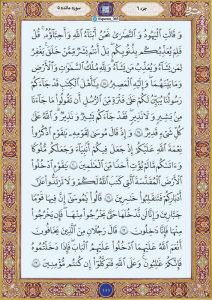 جزء ٦
سوره مائده ٥
وَقَالَتِ ٱلْيَهُودُ وَٱلنَّصَٰرَىٰ نَحْنُ أَبْنَٰٓؤُا۟ ٱللَّهِ وَأَحِبَّٰٓؤُهُۥ ۚ قُلْ
فَلِمَ يُعَذِّبُكُم بِذُنُوبِكُم ۖ بَلْ أَنتُم بَشَرٌ مِّمَّنْ خَلَقَ ۚ يَغْفِرُ
لِمَن يَشَآءُ وَيُعَذِّبُ مَن يَشَآءُ ۚ وَلِلَّهِ مُلْكُ ٱلسَّمَٰوَٰتِ وَٱلْأَرْضِ
وَمَا بَيْنَهُمَا ۖ وَإِلَيْهِ ٱلْمَصِيرُ ١٨ يَٰٓأَهْلَ ٱلْكِتَٰبِ قَدْ جَآءَكُمْ
رَسُولُنَا يُبَيِّنُ لَكُمْ عَلَىٰ فَتْرَةٍ مِّنَ ٱلرُّسُلِ أَن تَقُولُوا۟ مَا جَآءَنَا
مِنۢ بَشِيرٍ وَلَا نَذِيرٍ ۖ فَقَدْ جَآءَكُم بَشِيرٌ وَنَذِيرٌ ۗ وَٱللَّهُ عَلَىٰ
كُلِّ شَىْءٍ قَدِيرٌ ١٩ وَإِذْ قَالَ مُوسَىٰ لِقَوْمِهِۦ يَٰقَوْمِ ٱذْكُرُوا۟
نِعْمَةَ ٱللَّهِ عَلَيْكُمْ إِذْ جَعَلَ فِيكُمْ أَنۢبِيَآءَ وَجَعَلَكُم مُّلُوكًا
وَءَاتَىٰكُم مَّا لَمْ يُؤْتِ أَحَدًا مِّنَ ٱلْعَٰلَمِينَ ٢٠ يَٰقَوْمِ ٱدْخُلُوا۟
ٱلْأَرْضَ ٱلْمُقَدَّسَةَ ٱلَّتِى كَتَبَ ٱللَّهُ لَكُمْ وَلَا تَرْتَدُّوا۟ عَلَىٰٓ
أَدْبَارِكُمْ فَتَنقَلِبُوا۟ خَٰسِرِينَ ٢١ قَالُوا۟ يَٰمُوسَىٰٓ إِنَّ فِيهَا قَوْمًا
جَبَّارِينَ وَإِنَّا لَن نَّدْخُلَهَا حَتَّىٰ يَخْرُجُوا۟ مِنْهَا فَإِن يَخْرُجُوا۟
مِنْهَا فَإِنَّا دَٰخِلُونَ ٢٢ قَالَ رَجُلَانِ مِنَ ٱلَّذِينَ يَخَافُونَ
أَنْعَمَ ٱللَّهُ عَلَيْهِمَا ٱدْخُلُوا۟ عَلَيْهِمُ ٱلْبَابَ فَإِذَا دَخَلْتُمُوهُ
فَإِنَّكُمْ غَٰلِبُونَ ۚ وَعَلَى ٱللَّهِ فَتَوَكَّلُوٓا۟ إِن كُنتُم مُّؤْمِنِينَ ٢٣
١١١